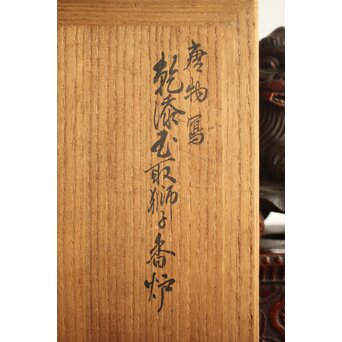 唐物写
乾漆玉取獅子香炉